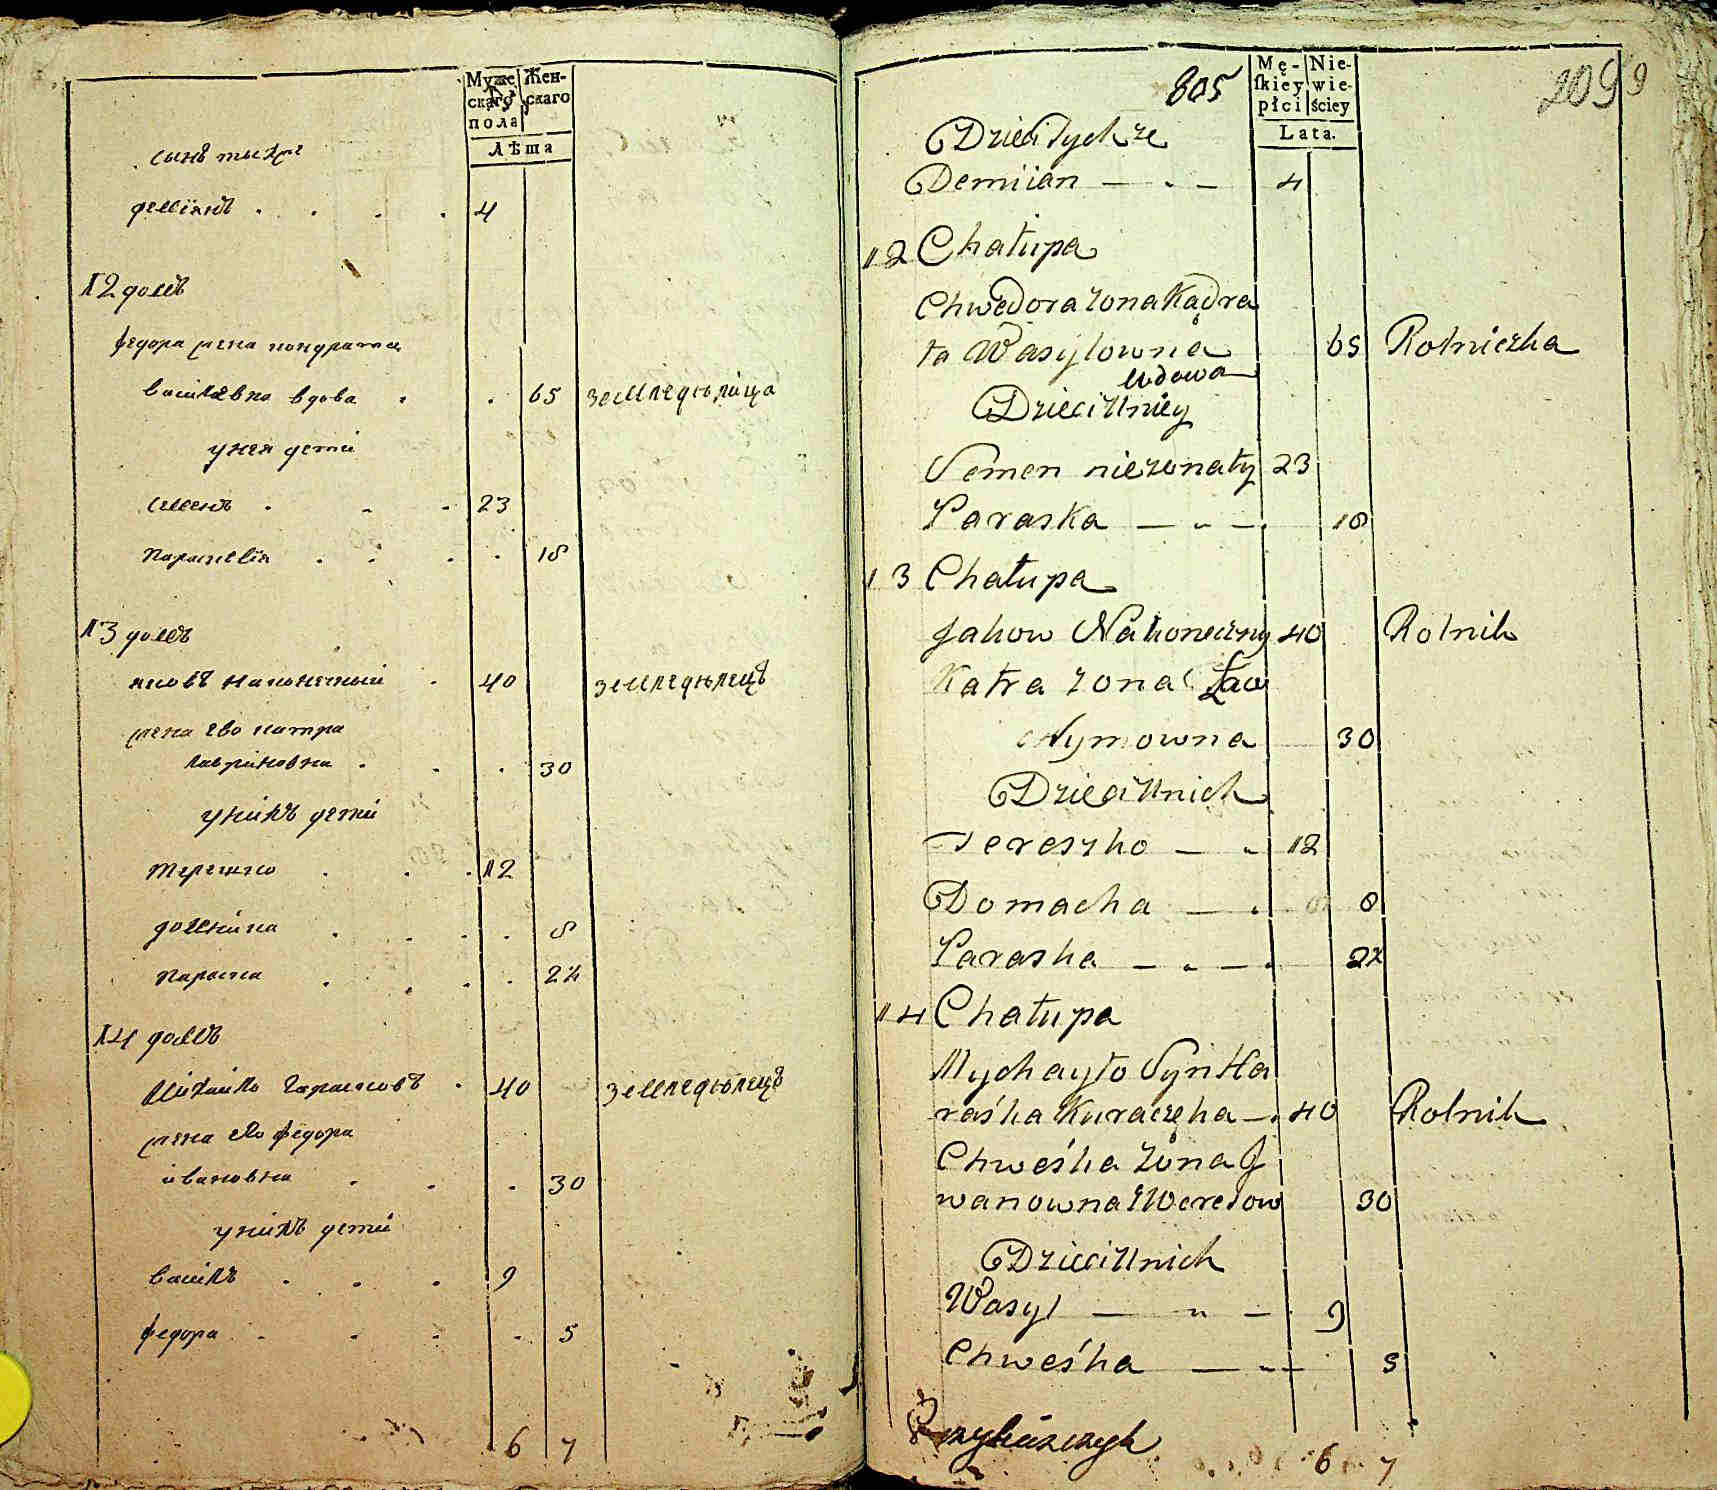 Муже
скаго
пола
Жен-
скаго
Лѣта
сынъ
демїянъ . . . . 4
12 домъ
федора жена кондратта
васїлевна вдова . . 65 земледѣлица
унея детї
семенъ . . . 23
параскевїя . . . . 18
13 домъ
яковъ наконечный . 40 земледѣлецъ
жена ево катра
лавриновна . . . 30
унихъ детї
терешко . . . 12
домнїка . . . . 8
параска . . . . 2½
14 домъ
Михайло гараськовъ . 40 земледѣлецъ
жена его федора
ивановна . . . 30
унихъ детї
василъ . . . 9
федора . . . . 5
6 7
805
209 9
Mę-
skiey
płci
Nie-
wie-
ściey
Lata.
Dzieci Tychze
Demiian — . — 4
12 Chałupa
Chwedora zona Kądra
ta Wasylowna 65 Rolniczka
wdowa
Dzieci Uniey
Semen niezonaty 23
Paraska — „ — . 18
13 Chałupa
Jakow Nakoneczny 40 Rolnik
Katra zona Ław
rynowna 30
Dzieci Unich
Tereszko — „ 12
Domacha — . 8
Paraska — „ — . 2½
14 Chałupa
Mychayło Syn Ha
raśka Kuraczęka — . 40 Rolnik
Chweśka zona J
wanowna 30
Dzieci Unich
Wasyl — „ — 9
Chweśka — „ — 5
6 7